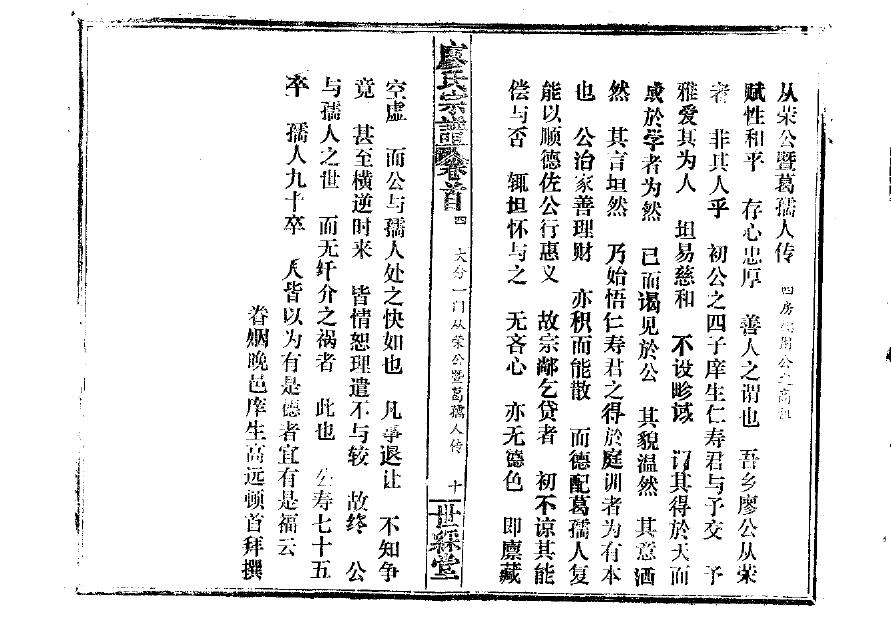 从荣公暨葛孺人传 四房
赋性和平 存心忠厚 善人之谓也 吾乡廖公从荣
者 非其人乎 初公之四子庠生仁寿君与予交 予
雅爱其为人 坦易慈和 不设畛域 订其得於天而
或於学者为然 已而谒见於公 其貌温然 其意洒
然 其言坦然 乃始悟仁寿君之得於庭训者为有本
也 公治家善理财 亦积而能散 而德配葛孺人复
能以顺德佐公行惠义 故宗鄰乞贷者 初不谅其能
偿与否 辄坦怀与之 无吝心 亦无德色 即廪藏
廖氏宗譜 卷首 四 大分一门从荣公暨葛孺人传 十 世綵堂
空虚 而公与孺人处之快如也 凡事退让 不知争
竟 甚至横逆时来 皆情恕理遣不与较 故终 公
与孺人之世 而无纤介之祸者 此也 公寿七十五
卒 孺人九十卒 人皆以为有是德者宜有是福云
眷姻晚邑庠生高远顿首拜撰